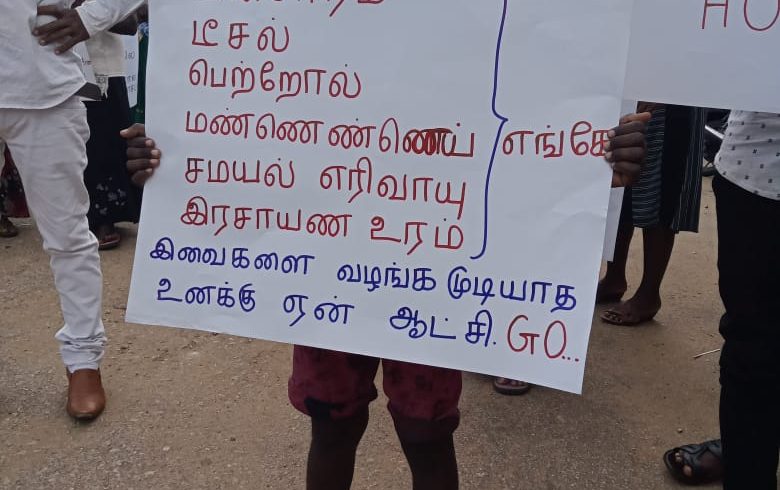 டீசல்
பெற்றோல்
மண்ணெண்ணெய்
சமயல் எரிவாயு
இரசாயண உரம்
எங்கே
இவைகளை வழங்க முடியாத
உனக்கு ஏன் ஆட்சி. GO...
HO